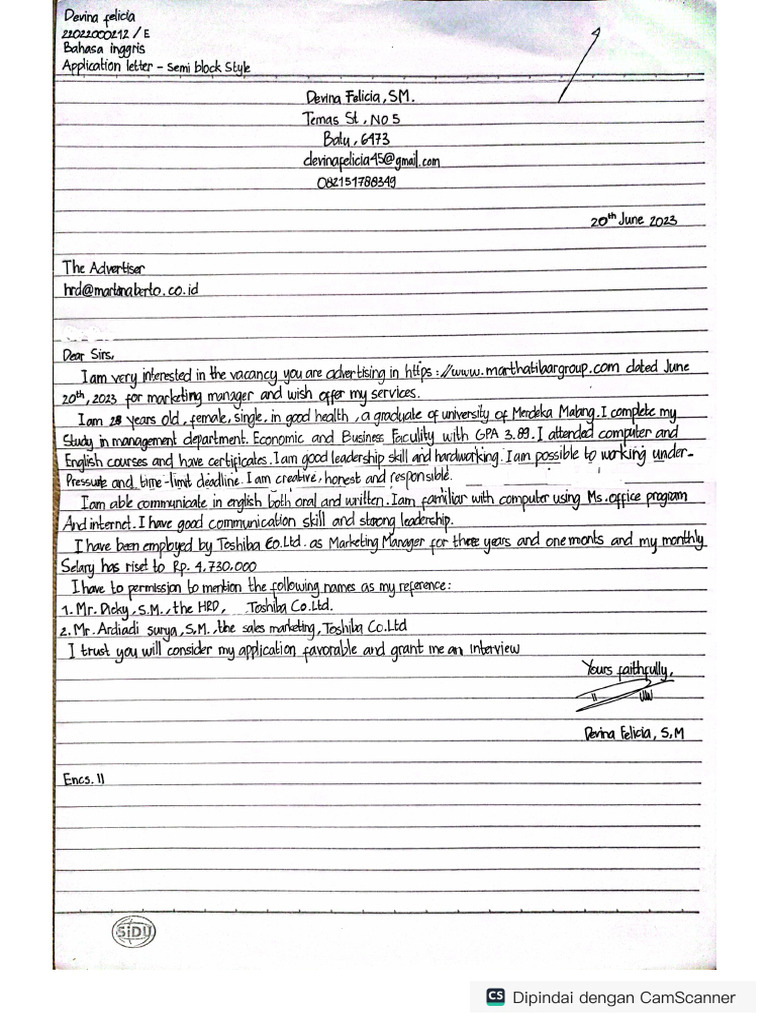 Devina felicia
22022000212 / E
Bahasa inggris
Application letter - semi block style
Devina Felicia, SM.
Temas St, NO 5
Batu, 6473
devinafelicia45@gmail.com
082151788349
20th June 2023
The Advertiser
hrd@martinaberto.co.id
Dear Sirs,
I am very interested in the vacancy you are advertising in https://www.marthatibargroup.com dated June
20th, 2023 for marketing manager and wish offer my services.
I am 28 years old, female, single, in good health, a graduate of university of Merdeka Malang. I complete my
study in management department. Economic and Business Faculity with GPA 3.89. I attended computer and
English courses and have certificates. I am good leadership skill and hardworking. I am possible to working under-
Pressure and time-limit deadline. I am creative, honest and responsible.
I am able communicate in english both oral and written. I am familiar with computer using Ms. office program
And internet. I have good communication skill and strong leadership.
I have been employed by Toshiba Co.Ltd. as Marketing Manager for three years and one monts and my monthly
Selary has rise to Rp. 4,730.000
I have to permission to mention the following names as my reference:
1. Mr. Dicky, S.M., the HRD, Toshiba Co.Ltd.
2. Mr. Ardiadi surya, S.M., the sales marketing, Toshiba Co.Ltd
I trust you will consider my application favorable and grant me an interview
Yours faithfully,
Devina Felicia, S.M
Encs. 11
SiDU
CS Dipindai dengan CamScanner